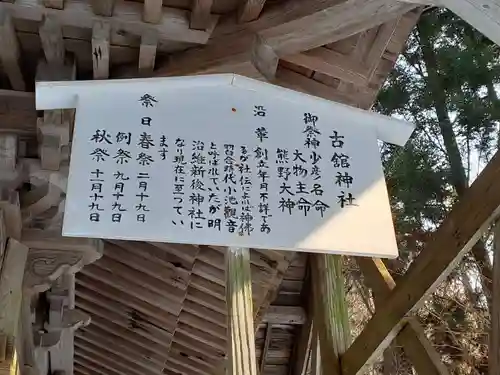 古舘神社
御祭神 少彦名命
大物主命
熊野大神
沿革 創立年月不詳であ
るが社伝によれば神佛
習合時代小池観音
と呼ばれていたが明
治維新後神社に
なり現在に至ってい
ます
祭日 春祭 二月十九日
例祭 九月十九日
秋祭 十一月十九日